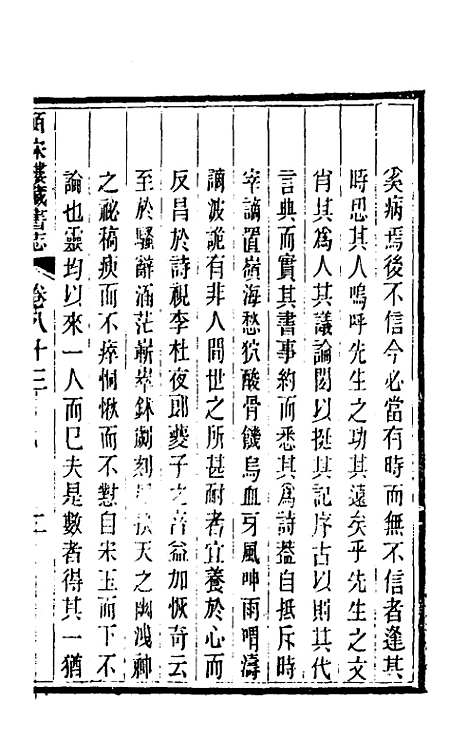 奚病焉後不信今必當有時而無不信者逢其
時思其人嗚呼先生之功其遠矣乎先生之文
肖其爲人其議論閎以挺其記序古以贍其代
言典而實其書事約而悉其爲詩葢自抵斥時
宰謫置嶺海愁狖酸骨饑烏血牙風呻雨喟濤
譎波詭有非人間世之所甚耐者宜養於心而
反昌於詩視李杜夜郎夔子之音益加恢奇云
至於騷辭涵茫嶄崒鉥劌刻抉天之幽洩神
之祕槁瘐而不瘁恫愀而不懟自宋玉而下不
論也靈均以來一人而已夫是數者得其一猶
皕宋樓藏書志
卷八十三